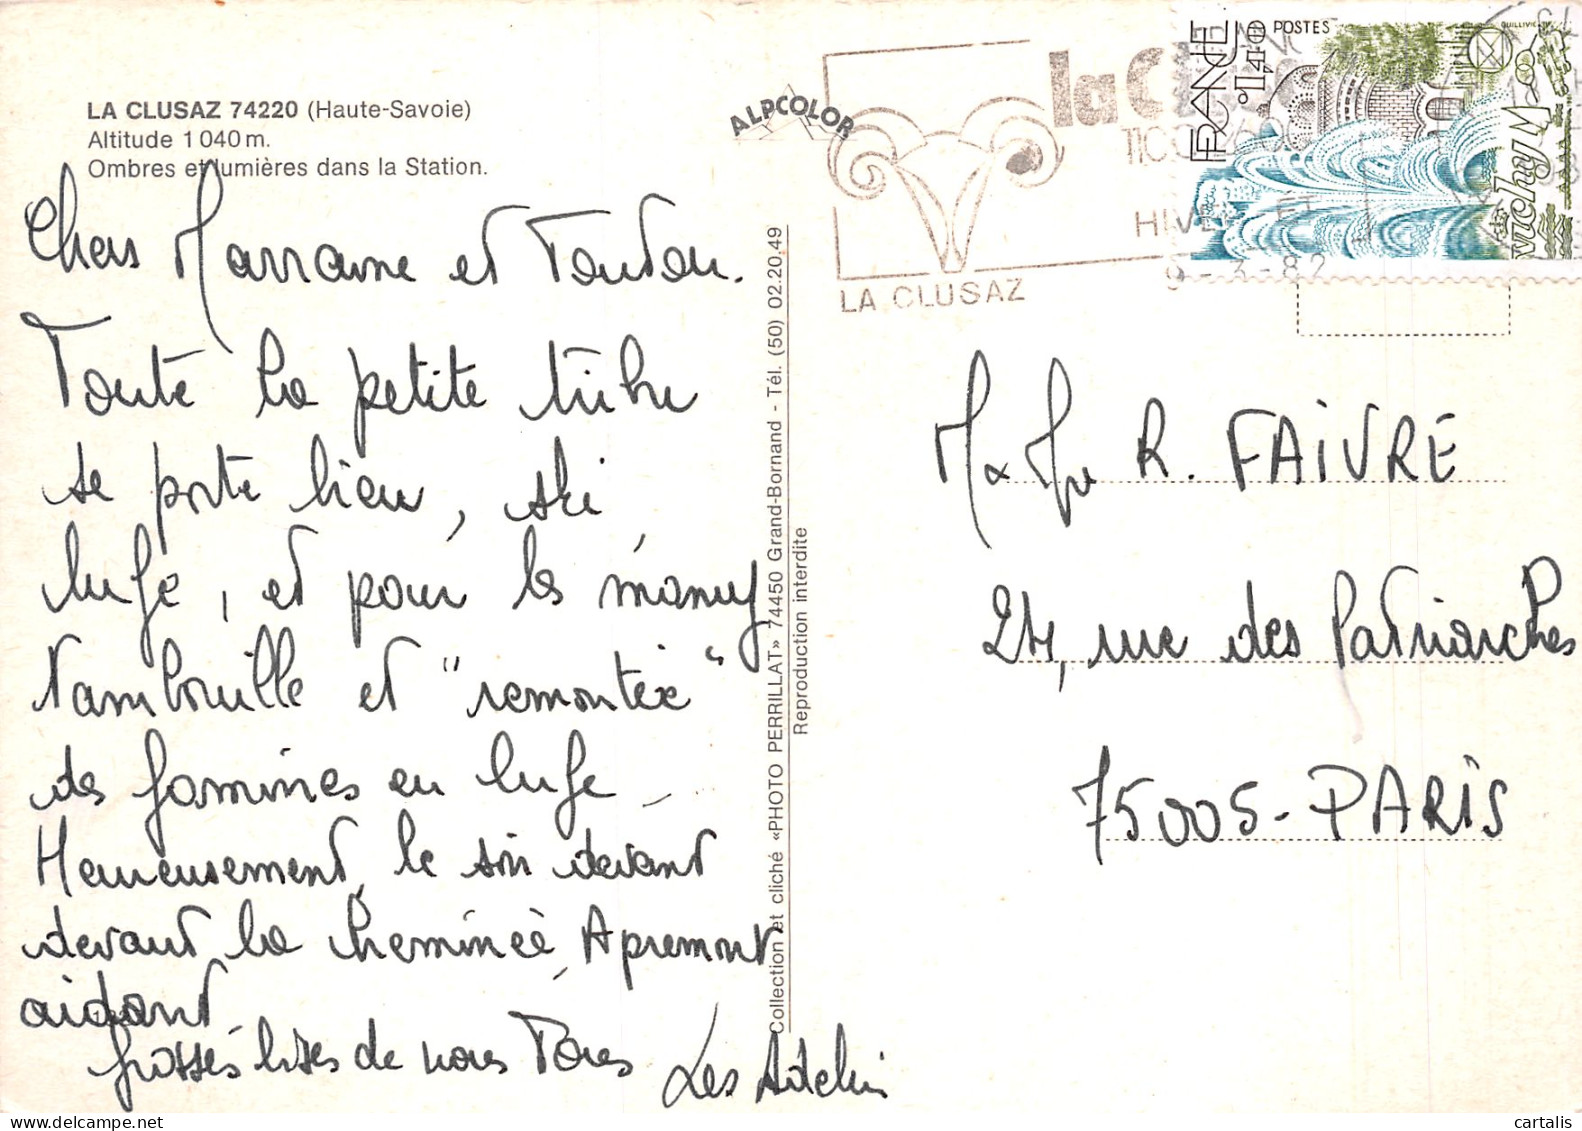 LA CLUSAZ 74220 (Haute-Savoie)
Altitude 1 040 m.
Ombres et lumières dans la Station.
Chers Marraine et Toutou.
Toute la petite tribu
se porte bien, ski
luge, et pour les mamies
tambouille et "remontée"
des gamines en luge
Heureusement, le soir devant
devant la cheminée, Apremont
aidant
grosses bises de nous Tous
Les
ALPCOLOR
Collection et cliché «PHOTO PERRILLAT» 74450 Grand-Bornand - Tél. (50) 02.20.49
Reproduction interdite
la C
1100
HIVER ET
LA CLUSAZ
9 - 3 - 82
FRANCE
1,40
POSTES
Vichy
M & Me R. FAIVRE
24, rue des Patriarches
75005 - PARIS
cartalis